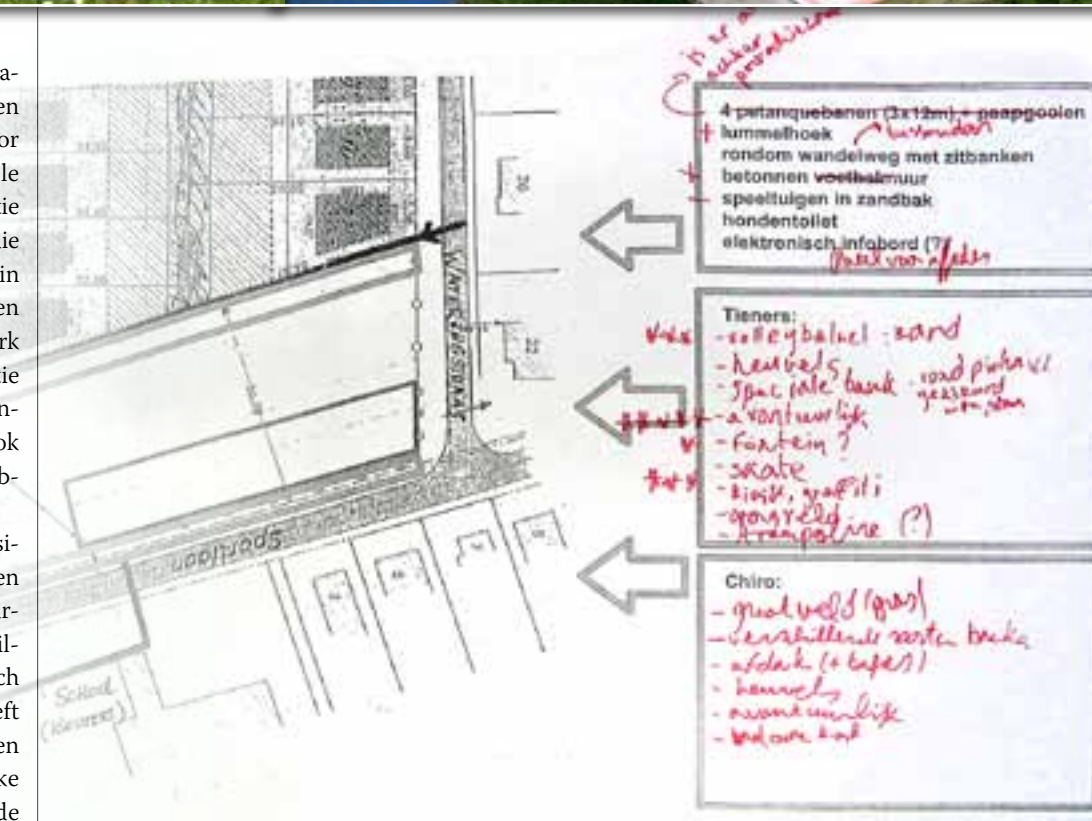 a-
en
or
le
tie
ie
in
en
rk
tie
n-
ok
b-
si-
en
ar-
il-
ch
eft
en
ke
de
WINTERSLAGSTRAAT
20
22
Sportlaan
School
(Kleuters)
is er a
achter
4 petanquebanen (3x12m) + paapgooien
lummelhoek
rondom wandelweg met zitbanken
betonnen voetbalmuur
speeltuigen in zandbak
hondentoilet
elektronisch infobord (?)
Tieners:
- volleybalvel - zand
- heuvels
- speciale bank - rond picknick
- avontuurlijk
- fontein ?
- skate
- kiosk, graffiti
- trampoline (?)
Chiro:
- groot veld (gras)
- verschillende soorten banken
- afdak (+ tafel)
- heuvels
- avontuurlijk